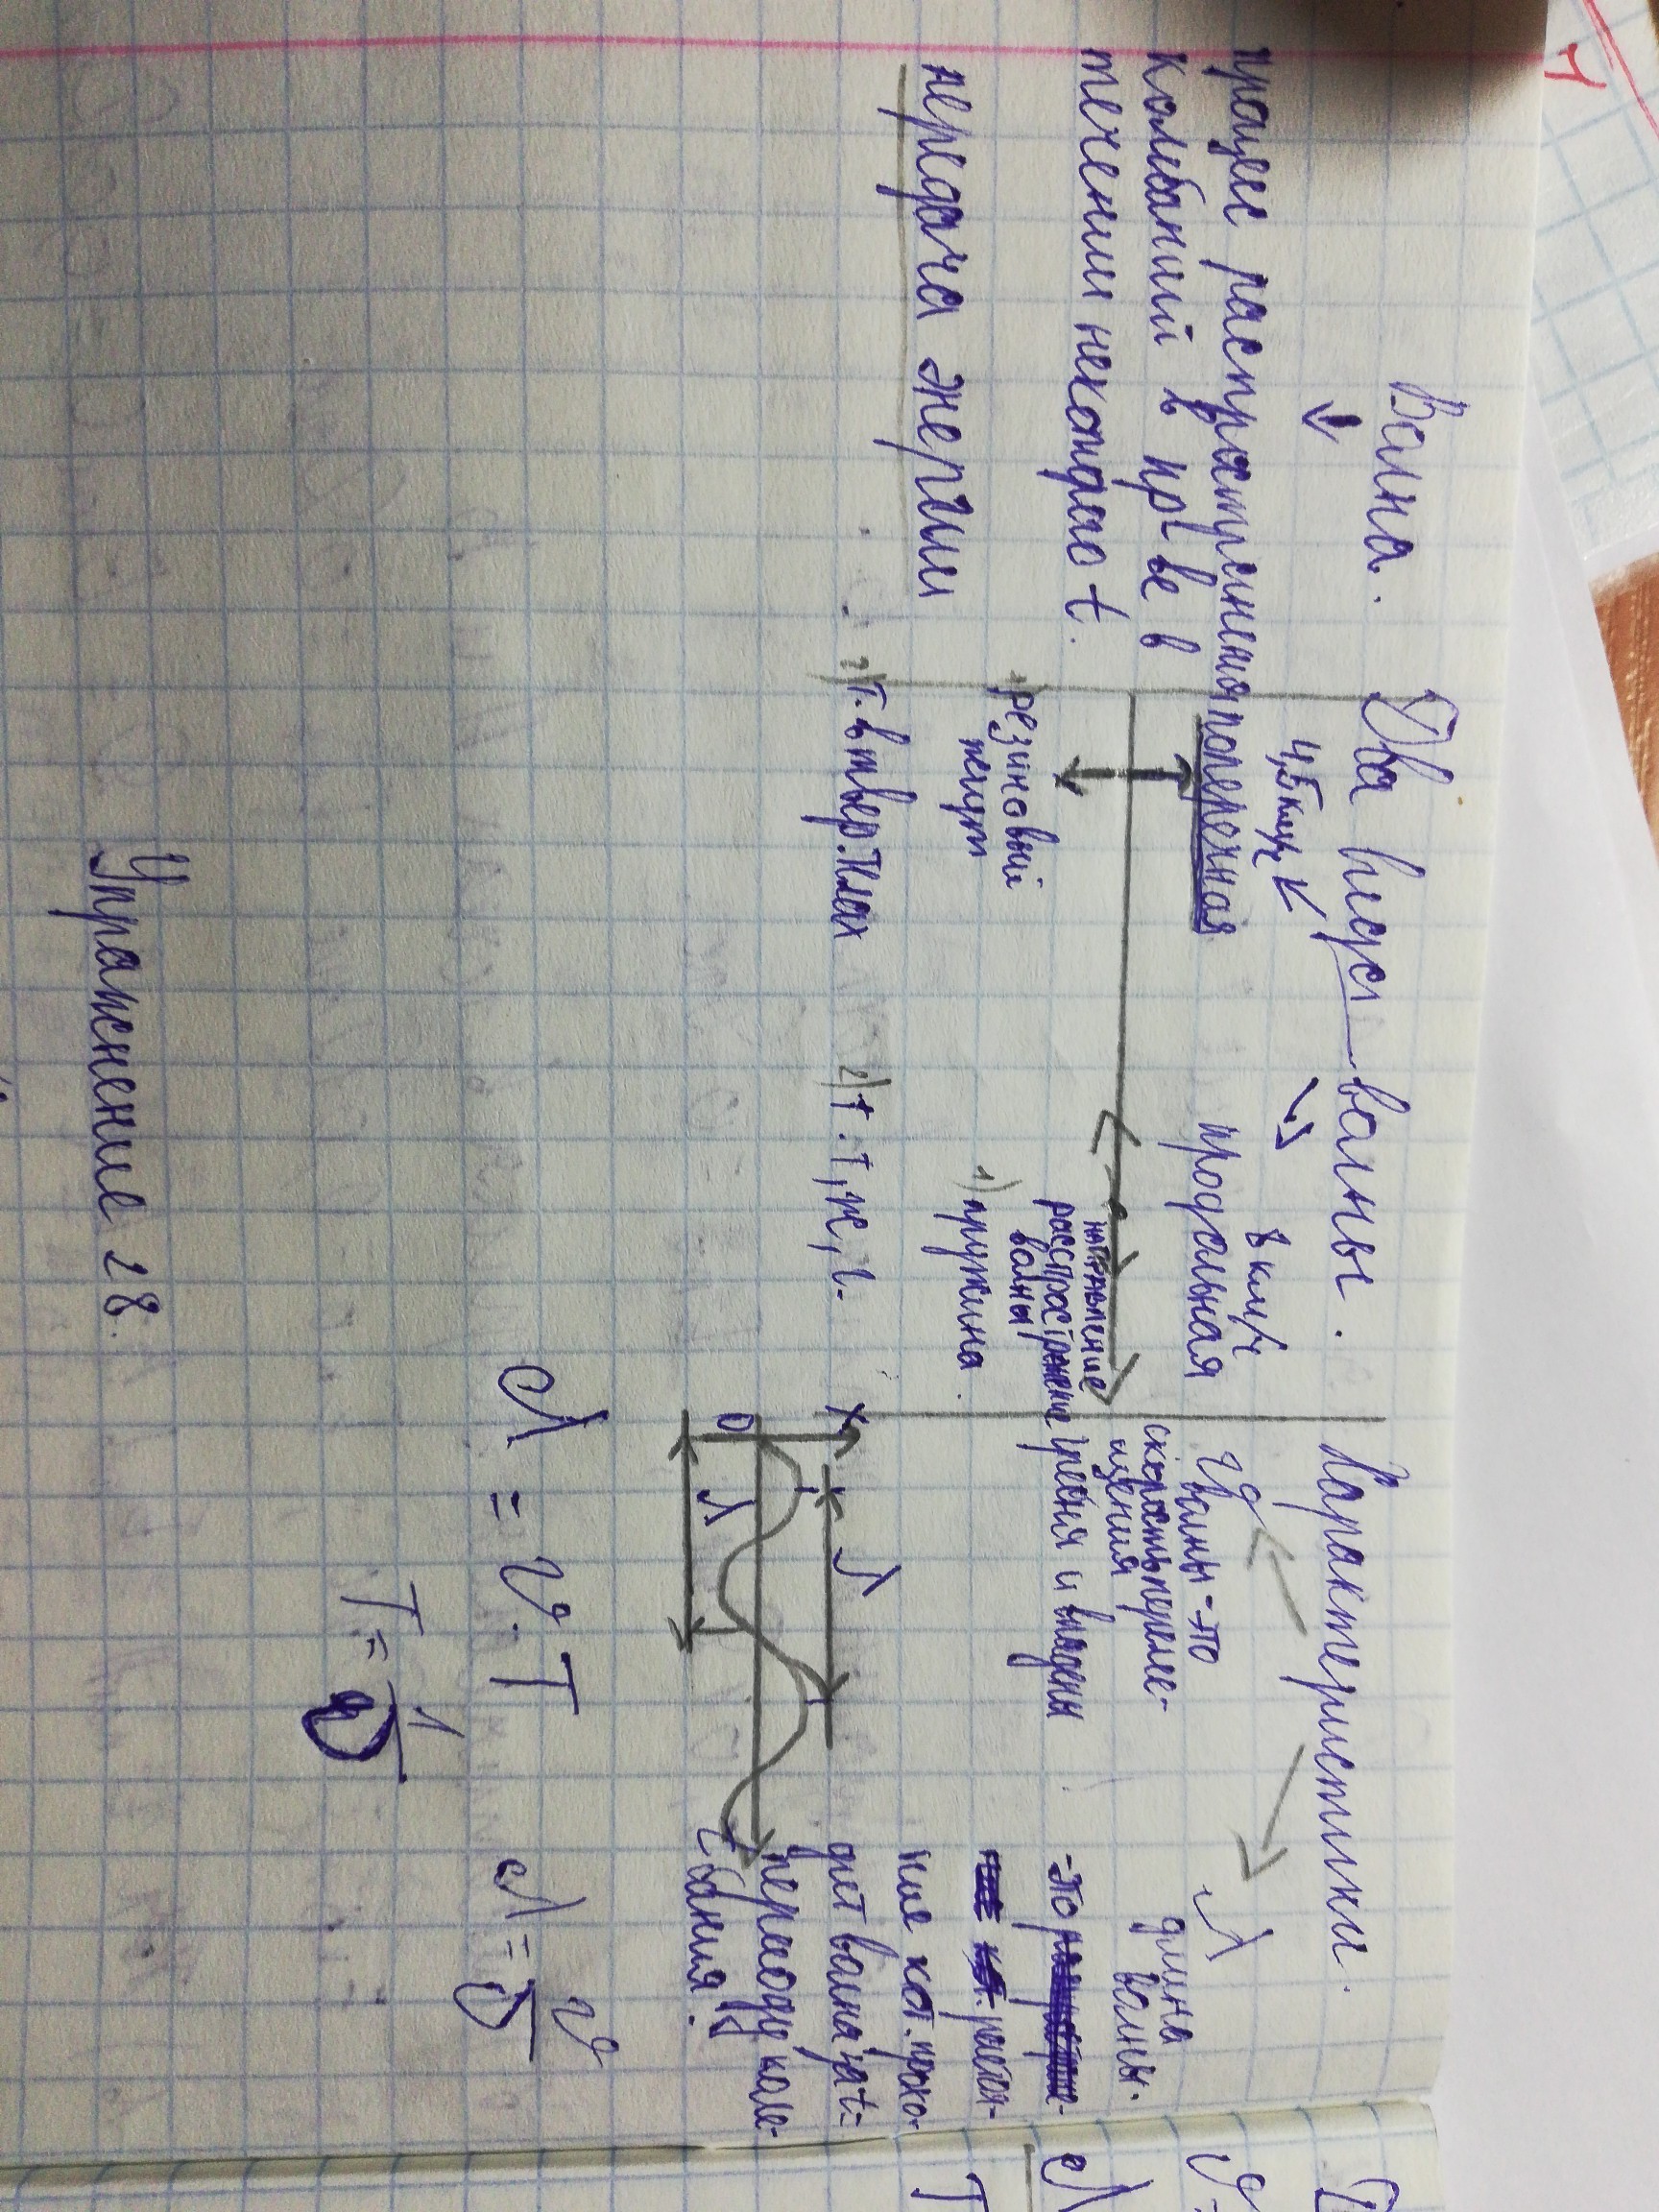 Волна.
процес распространения
колебаний в пр-ве в
течении некотрого t.
передача энергии
Два виды волны.
4,5 км/ч
поперечная
1) резиновый
жгут
2) т. в твер. телах
8 км/ч
продольная
направление
расспростронение
волны
1) пружина.
2) т. т, ж, г.
Характеристики.
υ
волны - это
скорость переме-
щения
гребня и впадены
λ
длина
волны.
- это
расстоя-
ние кот. прохо-
дит волна за t=
периоду коле-
бания.
X
λ
0
λ
t
λ = υ · T
T = 1/υ
λ = υ/υ
Упражнение 28.